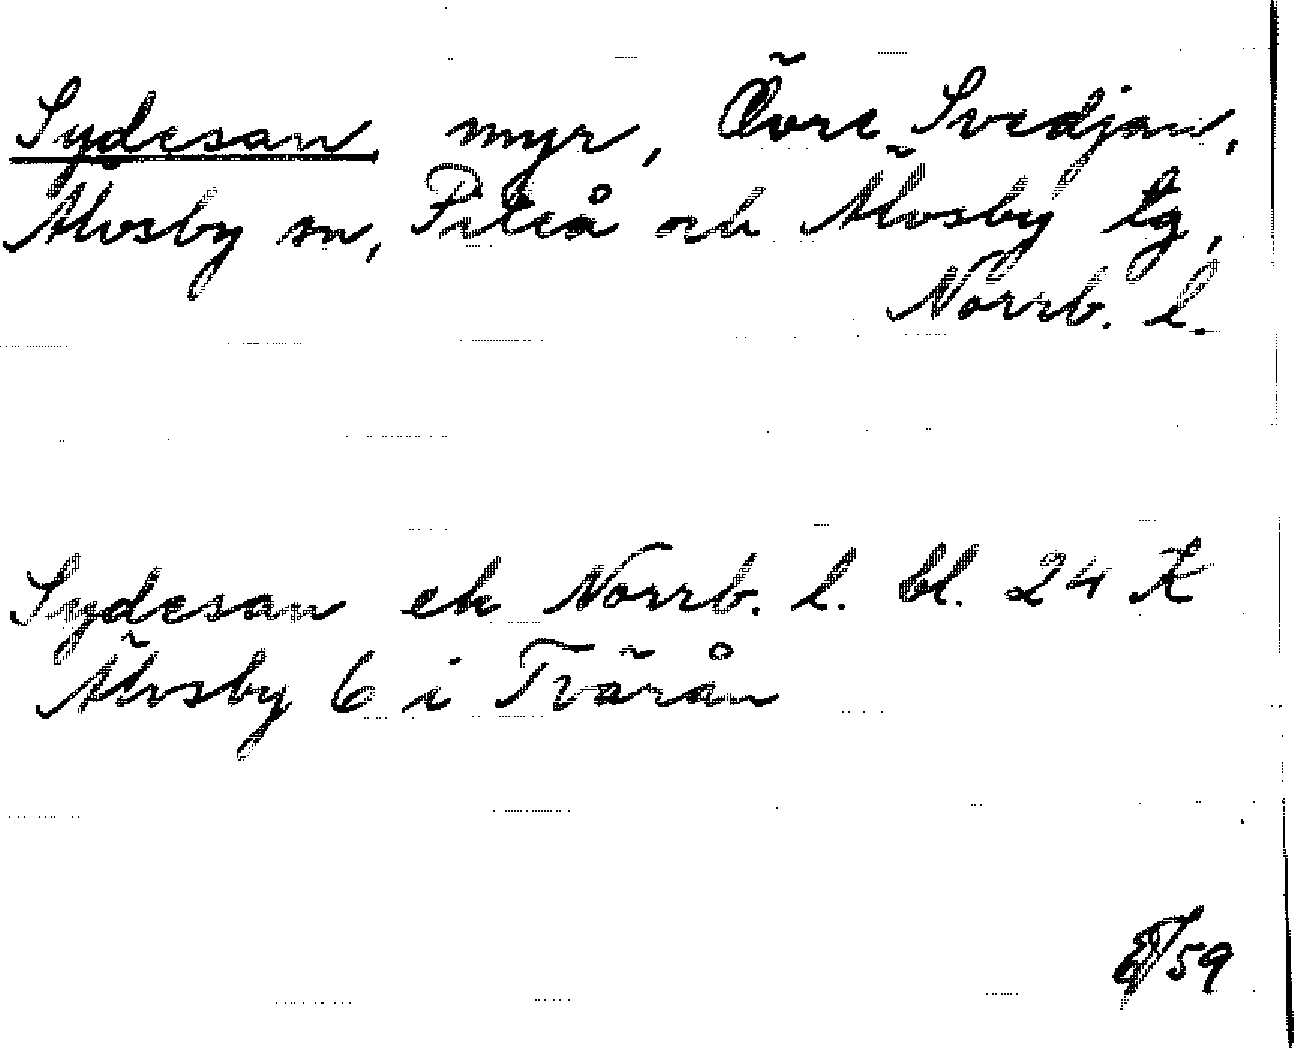 Sydesan myr, Övre Svedjan,
Älvsby sn, Piteå och Älvsby tg,
Norrb. l.
Sydesan ek Norrb. l. bl. 24 K
Älvsby 6 i Tvärån
/59